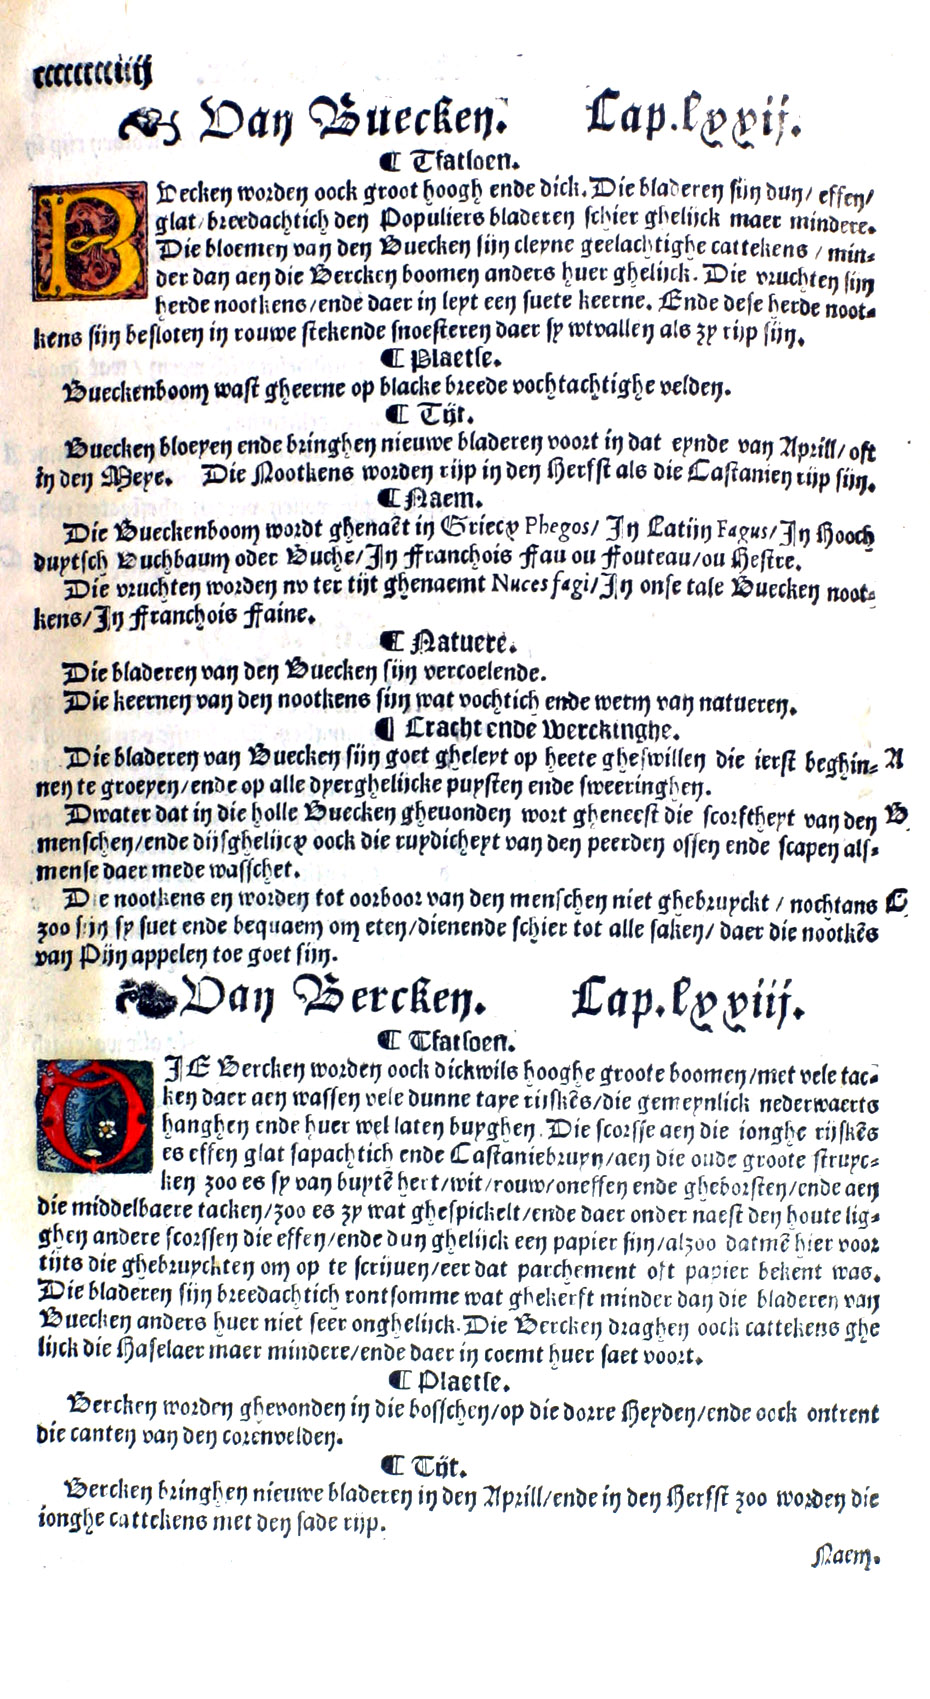 ccccccccciiij
Van Buecken. Cap.lxxij.
¶ Tfatsoen.
BVecken worden oock groot hoogh ende dick. Die bladeren sijn dun/ effen/
glat/breedachtich den Populiers bladeren schier ghelijck maer mindere.
Die bloemen van den Buecken sijn cleyne geelachtighe cattekens / min-
der dan aen die Bercken boomen anders huer ghelijck. Die vruchten sijn
herde nootkens/ende daer in leyt een suete keerne. Ende dese herde noot-
kens sijn besloten in rouwe stekende snoesteren daer sy wtvallen als zy rijp sijn.
¶ Plaetse.
Bueckenboom wast gheerne op blacke breede vochtachtighe velden.
¶ Tijt.
Buecken bloeyen ende bringhen nieuwe bladeren voort in dat eynde van Aprill/oft
in den Meye. Die Nootkens worden rijp in den Herfst als die Castanien rijp sijn.
¶ Naem.
Die Bueckenboom wordt ghenaēt in Griecx Phegos/ In Latijn Fagus/In Hooch
duytsch Buchbaum oder Buche/In Franchois Fau ou Fouteau/ou Hestre.
Die vruchten worden nv ter tijt ghenaemt Nuces fagi/In onse tale Buecken noot-
kens/In Franchois Faine.
¶ Natuere.
Die bladeren van den Buecken sijn vercoelende.
Die keernen van den nootkens sijn wat vochtich ende werm van natueren.
¶ Cracht ende Werckinghe.
Die bladeren van Buecken sijn goet gheleyt op heete gheswillen die ierst beghin- A
nen te groeyen/ende op alle dyerghelijcke puysten ende sweeringhen.
Dwater dat in die holle Buecken ghevonden wort gheneest die scorftheyt van den B
menschen/ende dijsghelijcx oock die ruydicheyt van den peerden ossen ende scapen als-
mense daer mede wasschet.
Die nootkens en worden tot oorboor van den menschen niet ghebruyckt / nochtans C
zoo sijn sy suet ende bequaem om eten/dienende schier tot alle saken/ daer die nootkēs
van Pijn appelen toe goet sijn.
Van Bercken. Cap.lxxiij.
¶ Tfatsoen.
DIE Bercken worden oock dickwils hooghe groote boomen/met vele tac-
ken daer aen wassen vele dunne taye rijskēs/die gemeynlick nederwaerts
hanghen ende huer wel laten buyghen. Die scorsse aen die ionghe rijskēs
es effen glat sapachtich ende Castaniebruyn/aen die oude groote struyc-
ken zoo es sy van buytē hert/wit/rouw/oneffen ende gheborsten/ende aen
die middelbaere tacken/zoo es zy wat ghespickelt/ende daer onder naest den houte lig-
ghen andere scorssen die effen/ende dun ghelijck een papier sijn/alzoo datmē hier voor
tijts die ghebruyckten om op te scrijuen/eer dat parchement oft papier bekent was.
Die bladeren sijn breedachtich rontsomme wat ghekerft minder dan die bladeren van
Buecken anders huer niet seer onghelijck. Die Bercken draghen oock cattekens ghe
lijck die Haselaer maer mindere/ende daer in coemt huer saet voort.
¶ Plaetse.
Bercken worden ghevonden in die bosschen/op die dorre Heyden/ende oock ontrent
die canten van den corenvelden.
¶ Tijt.
Bercken bringhen nieuwe bladeren in den Aprill/ende in den Herfst zoo worden die
ionghe cattekens met den sade rijp.
Naem.